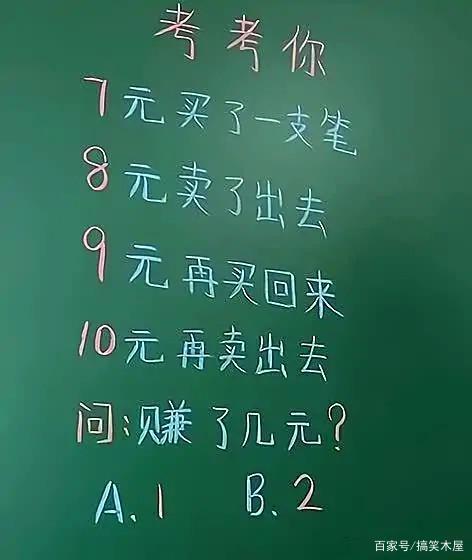 考考你
7元买了一支笔
8元卖了出去
9元再买回来
10元再卖出去
问:赚了几元?
A.1 B.2
百家号/搞笑木屋